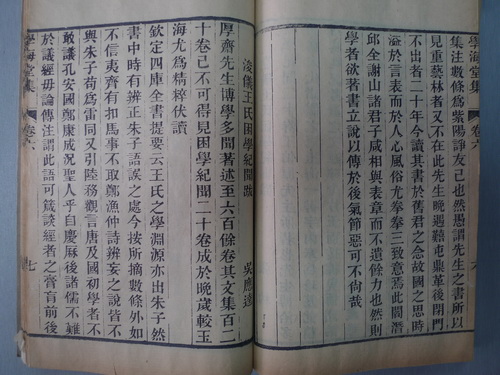 學海堂集
卷六
六
集注數條爲紫陽諍友已也然愚謂先生之書所以
見重藝林者又不在此先生晚遇難屯鼎革後閉門
不出者二十年今讀其書於舊君之念故國之思時
溢於言表而於人心風俗尤拳拳三致意焉此閻潛
邱全謝山諸君子咸相與表章而不遺餘力也然則
學者欲著書立說以傳於後氣節惡可不尚哉
浚儀王氏困學紀聞跋
吳應逵
厚齋先生博學多聞著述至六百餘卷其文集百二
十卷已不可得見困學紀聞二十卷成於晚歲較玉
海尤爲精粹伏讀
欽定四庫全書提要云王氏之學淵源亦出朱子然
書中時有辨正朱子語誤之處今按所摘數條外如
不信夷齊有扣馬事不取鄭漁仲詩辨妄之說皆不
與朱子苟爲雷同又引陸務觀言唐及國初學者不
敢議孔安國鄭康成況聖人乎自慶厤後諸儒不難
於議經毋論傳注謂此語可箴談經者之膏肓前後
學海堂集
卷六
七